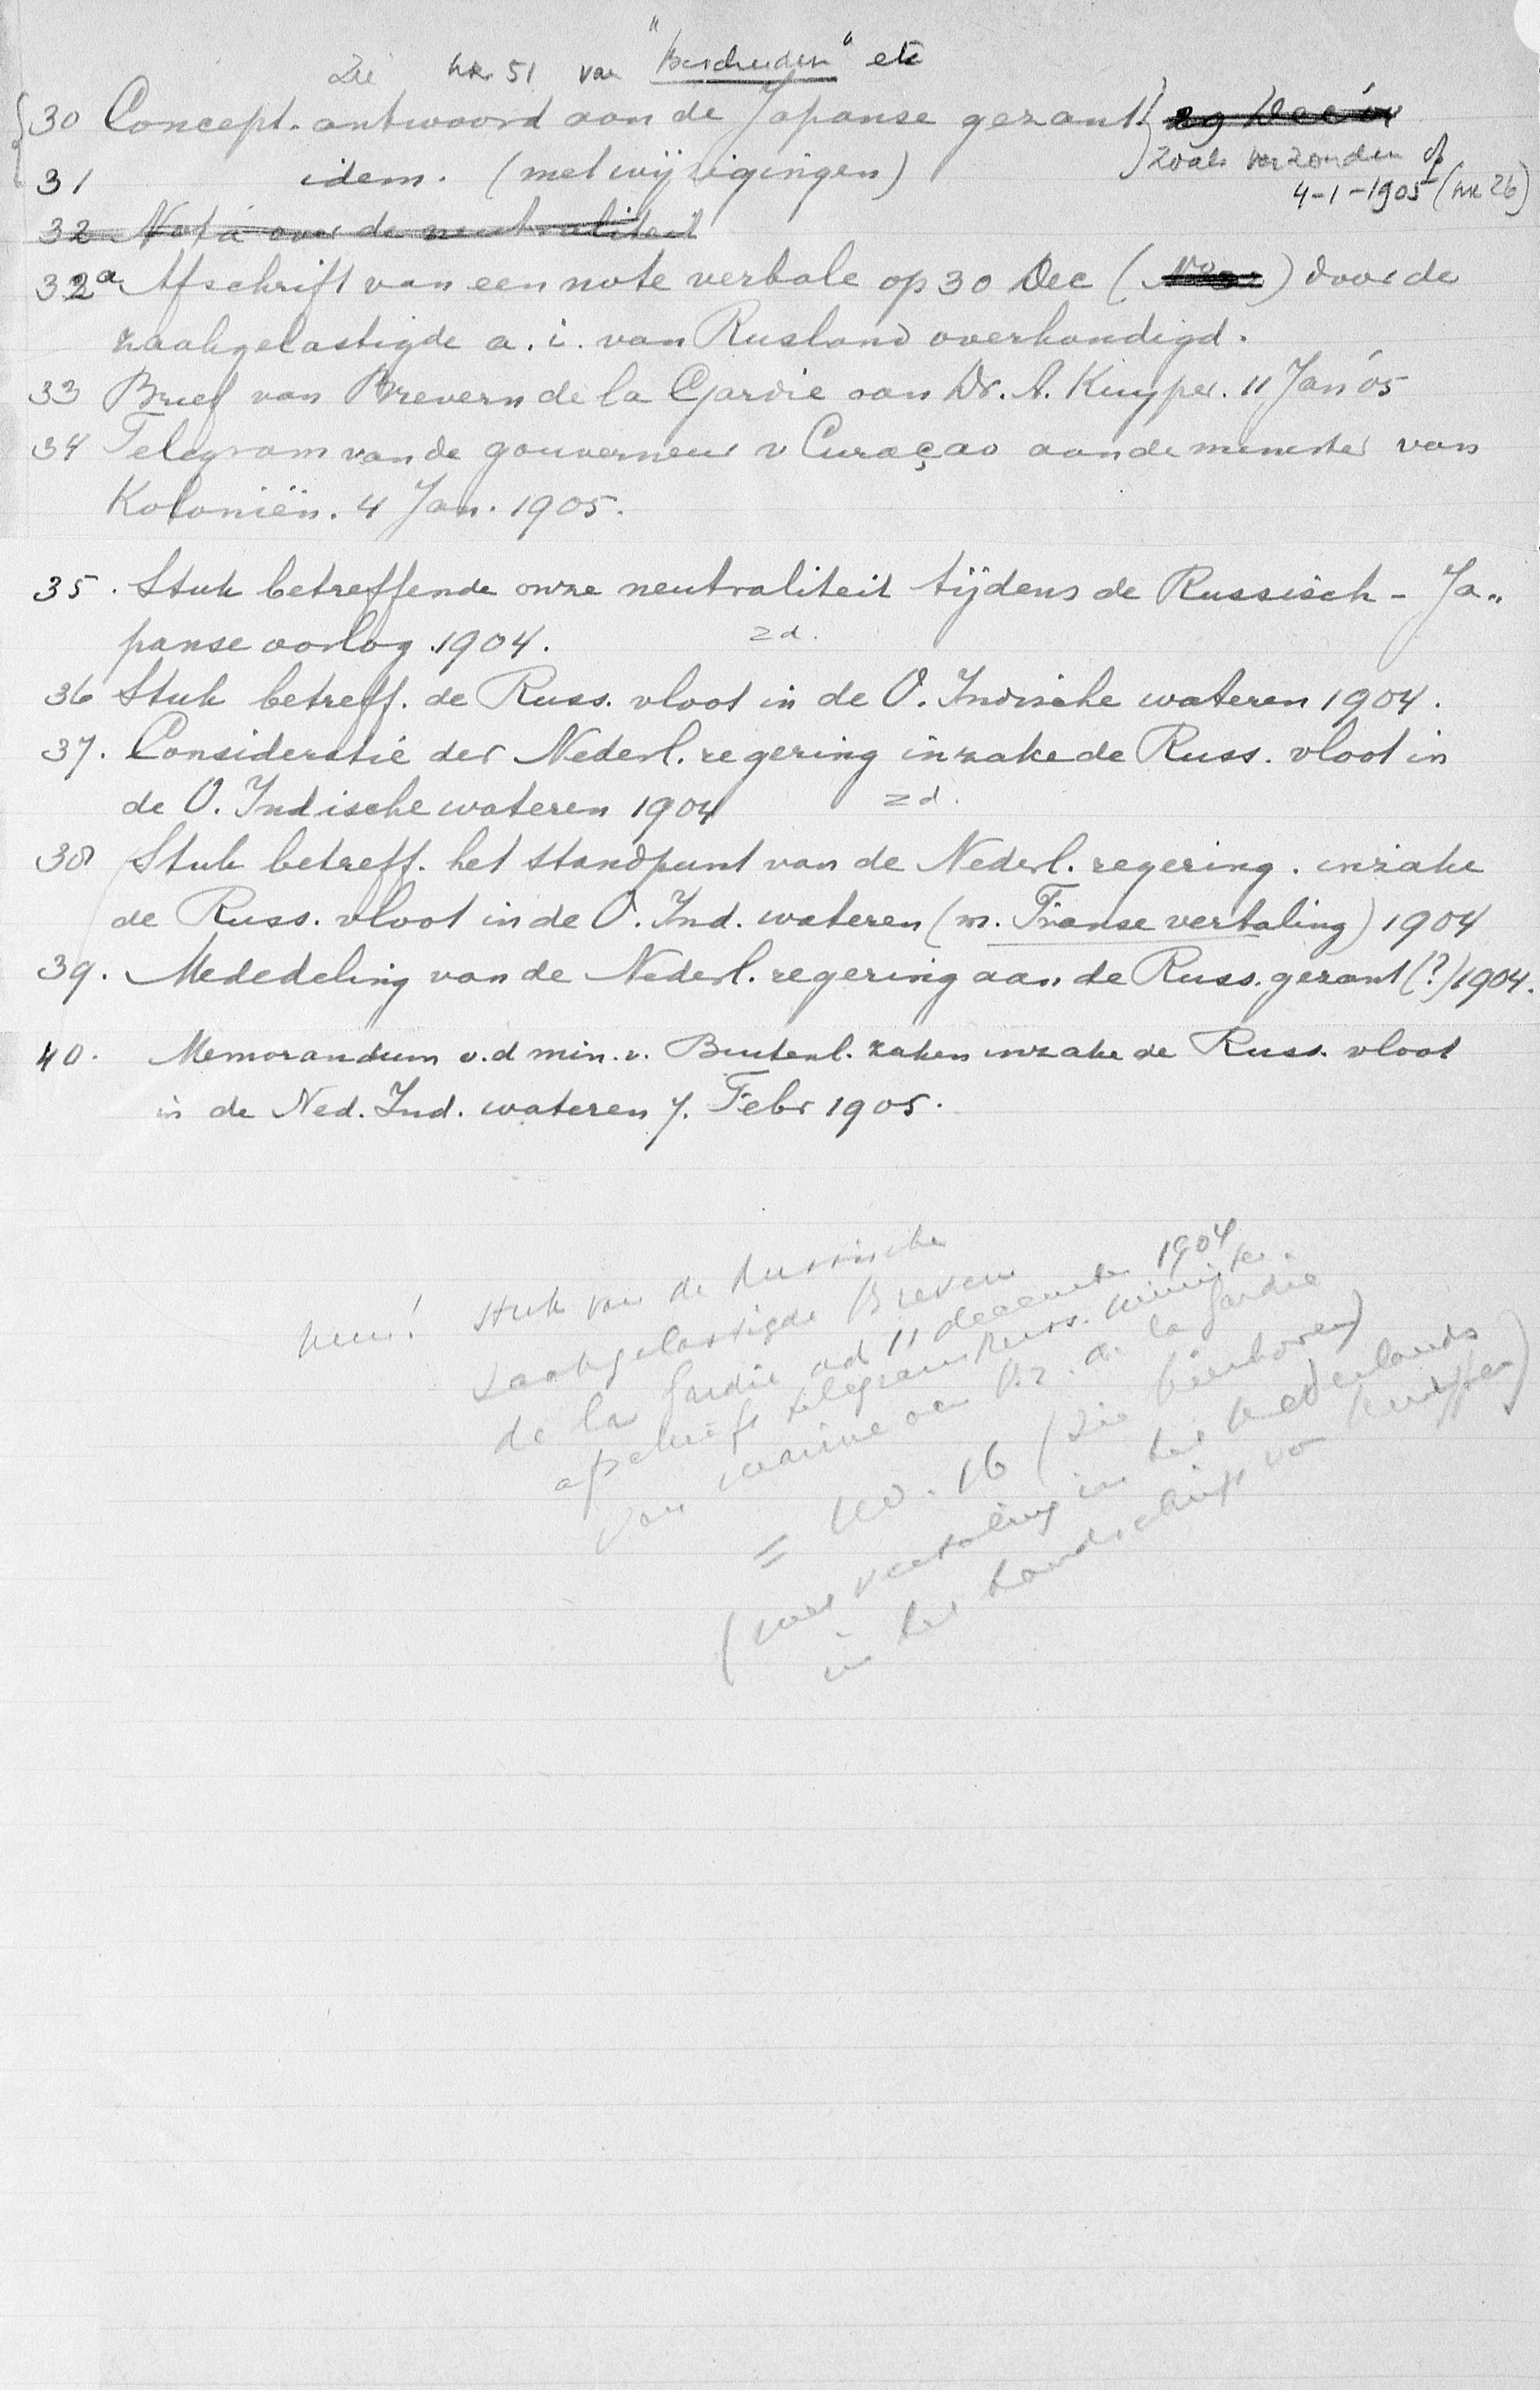 Zie nr. 51 van "Bescheiden" etc
30 Concept-antwoord aan de Japanse gezant! 29 Dec
31 idem. (met wijzigingen)
zoals verzonden op
4-1-1905 (nr 26)
32 Nota over de neutraliteit
32a Afschrift van een note verbale op 30 Dec ( ) door de
zaakgelastigde a. i. van Rusland overhandigd.
33 Brief van Brevern de la Gardie aan Dr. A. Kuyper. 11 Jan '05
34 Telegram van de gouverneur v Curaçao aan de minister van
Koloniën. 4 Jan. 1905.
35. Stuk betreffende onze neutraliteit tijdens de Russisch - Ja„
panse oorlog. 1904. zd.
36 Stuk betreff. de Russ. vloot in de O. Indische wateren 1904.
37. Consideratie der Nederl. regering inzake de Russ. vloot in
de O. Indische wateren 1904 zd.
38 Stuk betreff. het standpunt van de Nederl. regering. inzake
de Russ. vloot in de O. Ind. wateren (m. Franse vertaling) 1904
39. Mededeling van de Nederl. regering aan de Russ. gezant (?) 1904.
40. Memorandum v.d min. v. Buitenl. zaken inzake de Russ. vloot
in de Ned. Ind. wateren 7. Febr 1905.
stuk van de Russische
zaakgelastigde Brevern
de la Gardie dd 11 december 1904
afschrift telegram Russ. minister
van marine aan B. de la Gardie
= no. 16 (zie hierboven)
(met vertaling in het Nederlands
in het handschrift van Kuyper)